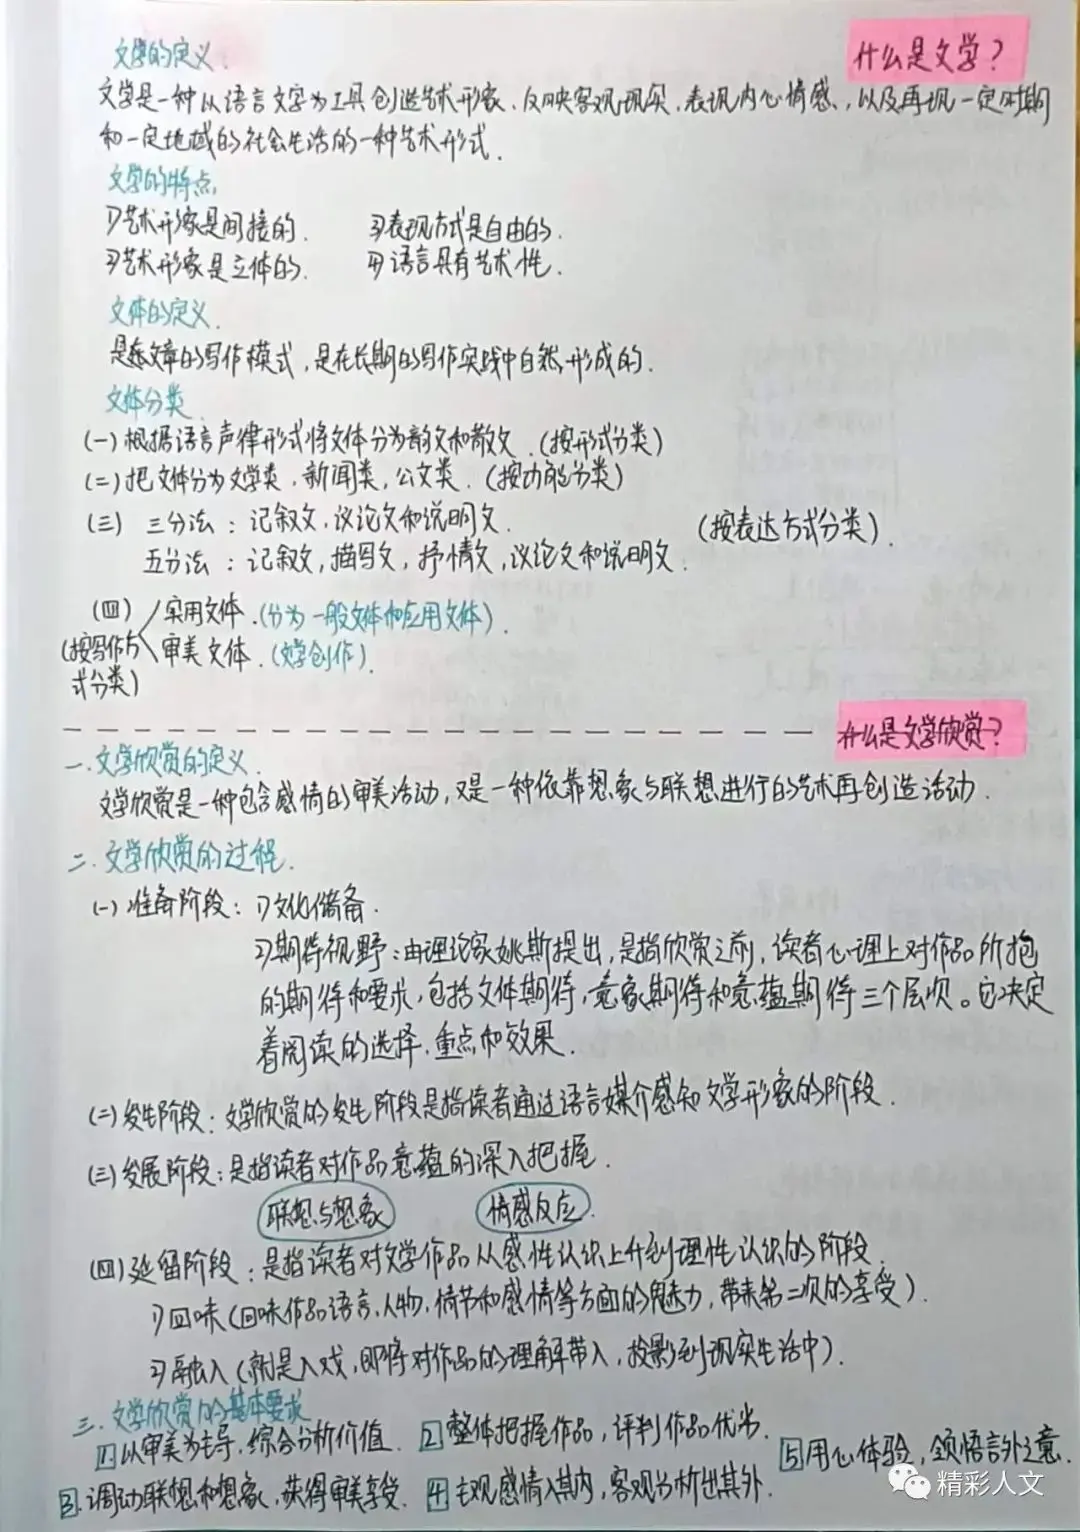 什么是文学？
文学的定义：
文学是一种以语言文字为工具创造艺术形象、反映客观现实、表现内心情感、以及再现一定时期
和一定地域的社会生活的一种艺术形式.
文学的特点,
1)艺术形象是间接的.　3)表现方式是自由的.
2)艺术形象是立体的.　4)语言具有艺术性.
文体的定义.
是文章的写作模式，是在长期的写作实践中自然形成的.
文体分类
(一)根据语言声律形式将文体分为韵文和散文.(按形式分类)
(二)把文体分为文学类，新闻类，公文类.(按功能分类)
(三) 三分法：记叙文，议论文和说明文.
(按表达方式分类).
五分法：记叙文，描写文，抒情文，议论文和说明文.
(四) 实用文体.(分为一般文体和应用文体).
(按写作方 审美文体.(文学创作).
式分类)
什么是文学欣赏？
一.文学欣赏的定义.
文学欣赏是一种包含感情的审美活动，又是一种依靠想象与联想进行的艺术再创造活动.
二.文学欣赏的过程.
(一)准备阶段：1)文化储备.
2)期待视野：由理论家姚斯提出，是指欣赏之前，读者心理上对作品所抱
的期待和要求，包括文体期待，意象期待和意蕴期待三个层次。它决定
着阅读的选择.重点和效果.
(二)发生阶段：文学欣赏的发生阶段是指读者通过语言媒介感知文学形象的阶段.
(三)发展阶段：是指读者对作品意蕴的深入把握.
联想与想象　情感反应.
(四)延留阶段：是指读者对文学作品从感性认识上升到理性认识的阶段.
1)回味(回味作品语言，人物，情节和感情等方面的魅力，带来第二次的享受).
2)融入(就是入戏，即将对作品的理解带入，投影到现实生活中).
三.文学欣赏的基本要求
1.以审美为主导，综合分析价值.　2整体把握作品，评判作品优劣.
5用心体验，领悟言外之意.
3.调动联想和想象，获得审美享受.　4主观感情入其内，客观分析出其外.
精彩人文